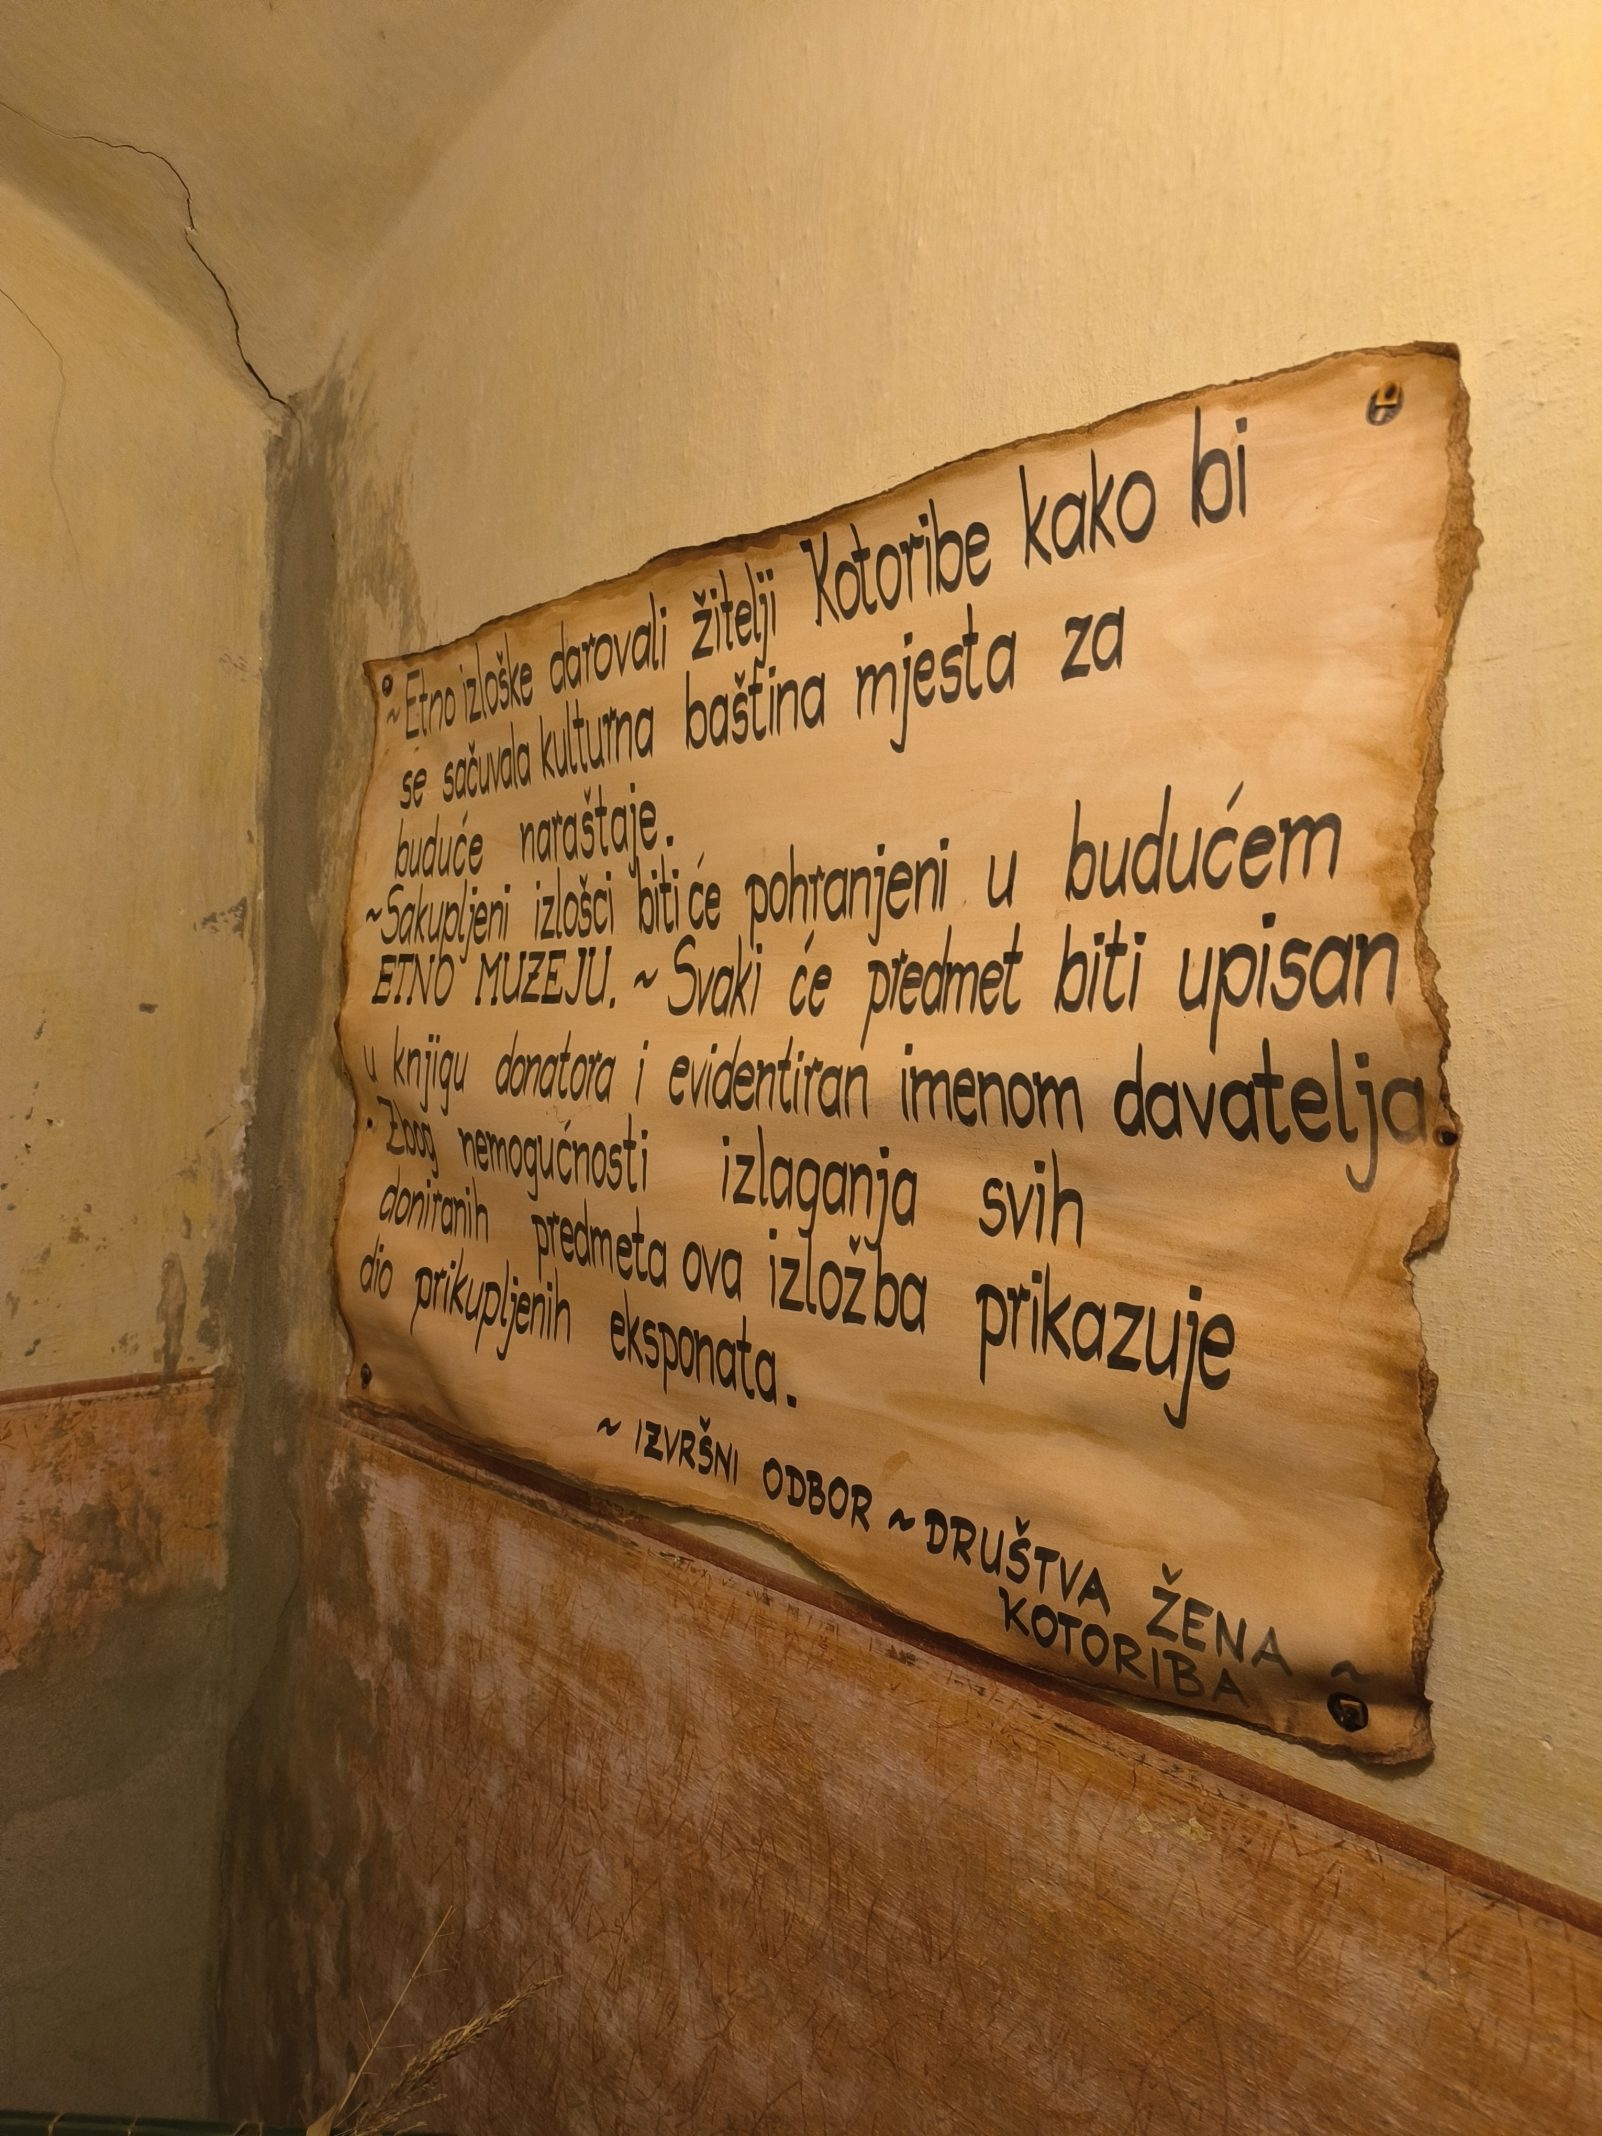 ~Etno izloške darovali žitelji Kotoribe kako bi
se sačuvala kulturna baština mjesta za
buduće naraštaje.
~Sakupljeni izlošci biti će pohranjeni u budućem
ETNO MUZEJU. ~ Svaki će predmet biti upisan
u knjigu donatora i evidentiran imenom davatelja.
· Zbog nemogućnosti izlaganja svih
doniranih predmeta ova izložba prikazuje
dio prikupljenih eksponata.
~ IZVRŠNI ODBOR ~ DRUŠTVA ŽENA ~
KOTORIBA